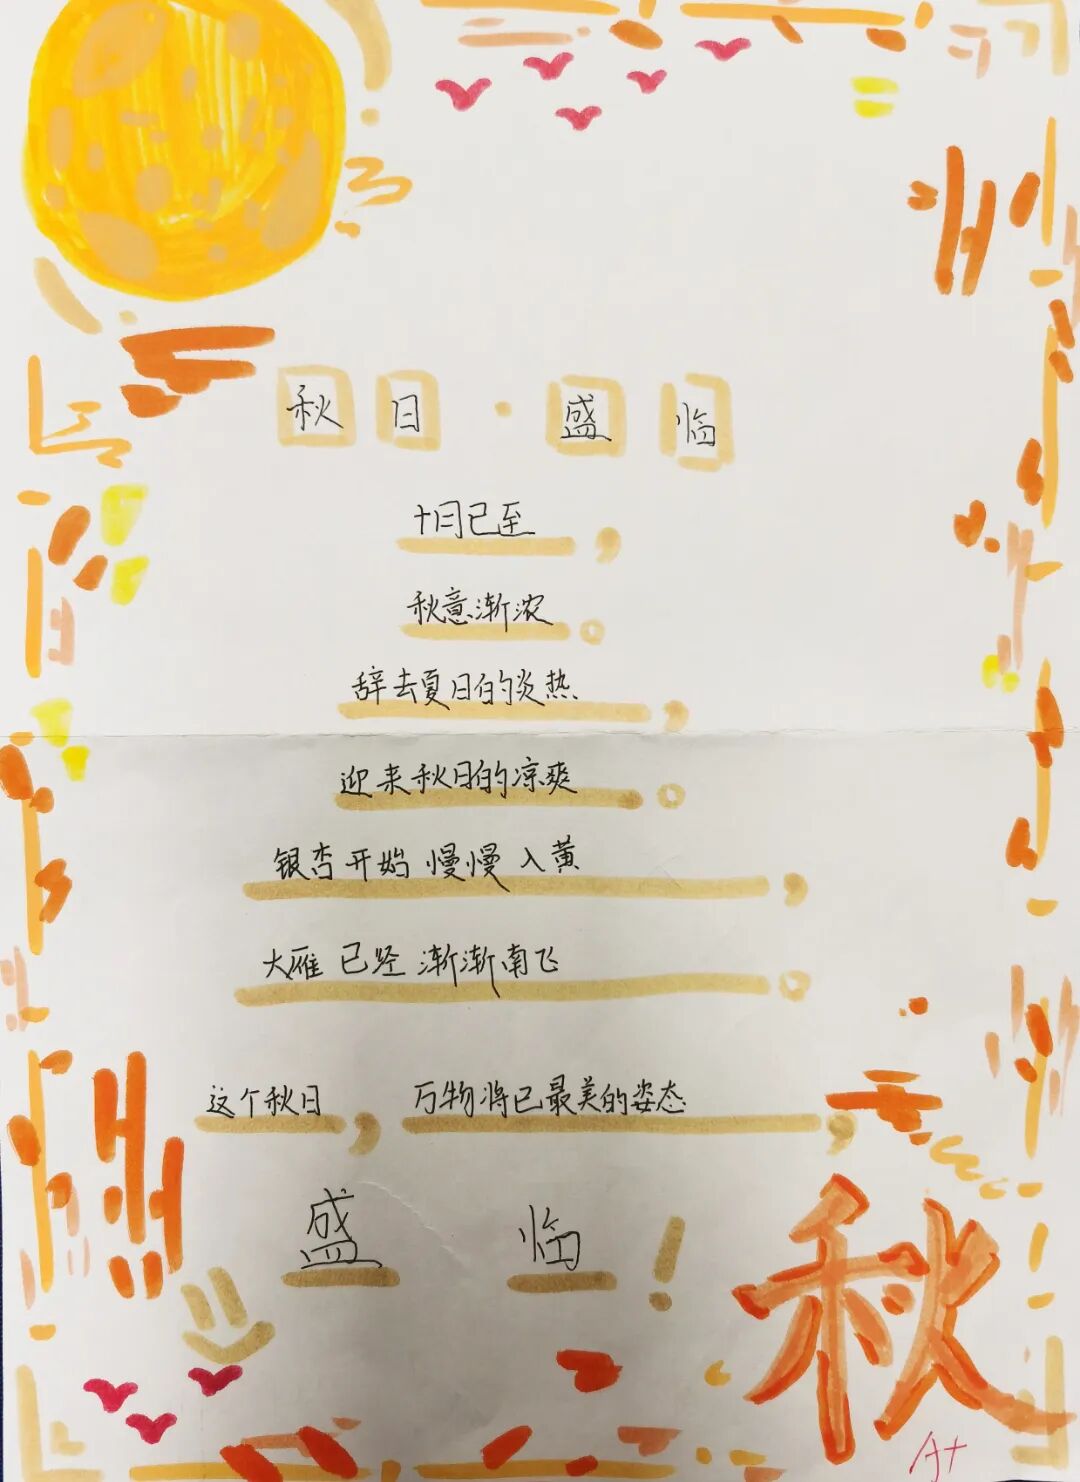 秋日·盛临
十月已至，
秋意渐浓。
辞去夏日的炎热，
迎来秋日的凉爽。
银杏开始慢慢入黄，
大雁已经渐渐南飞。
这个秋日，万物将已最美的姿态，
盛临！
秋
A+